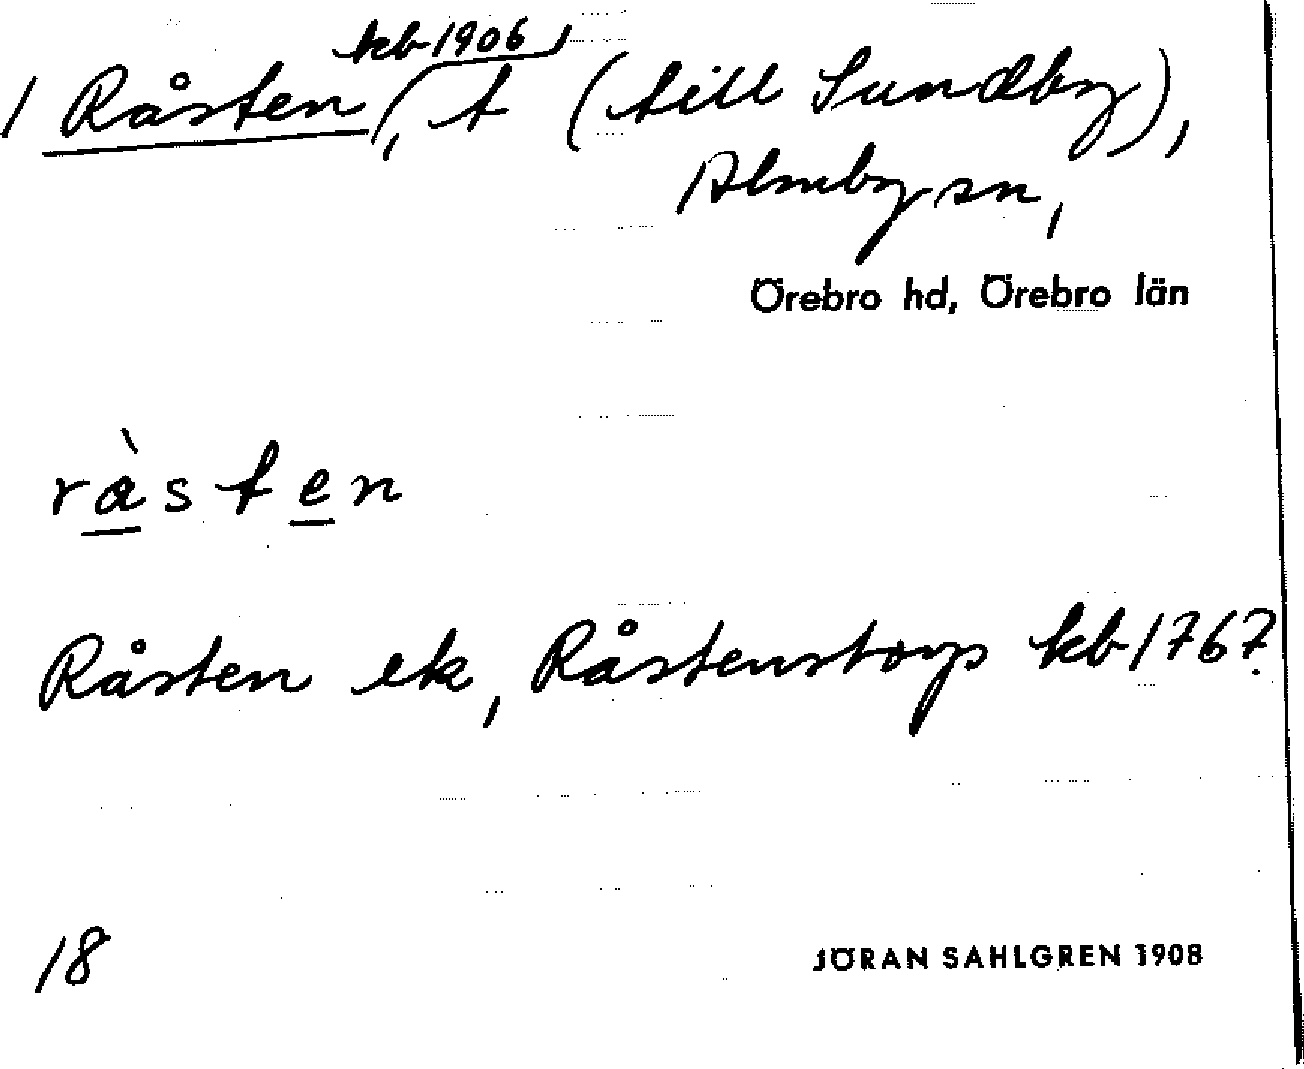 kb 1906
1 Råsten, t (till Sundby),
Almby sn,
Örebro hd, Örebro län
ràsten
Råsten ek, Råstenstorp kb 1767.
18
JÖRAN SAHLGREN 1908